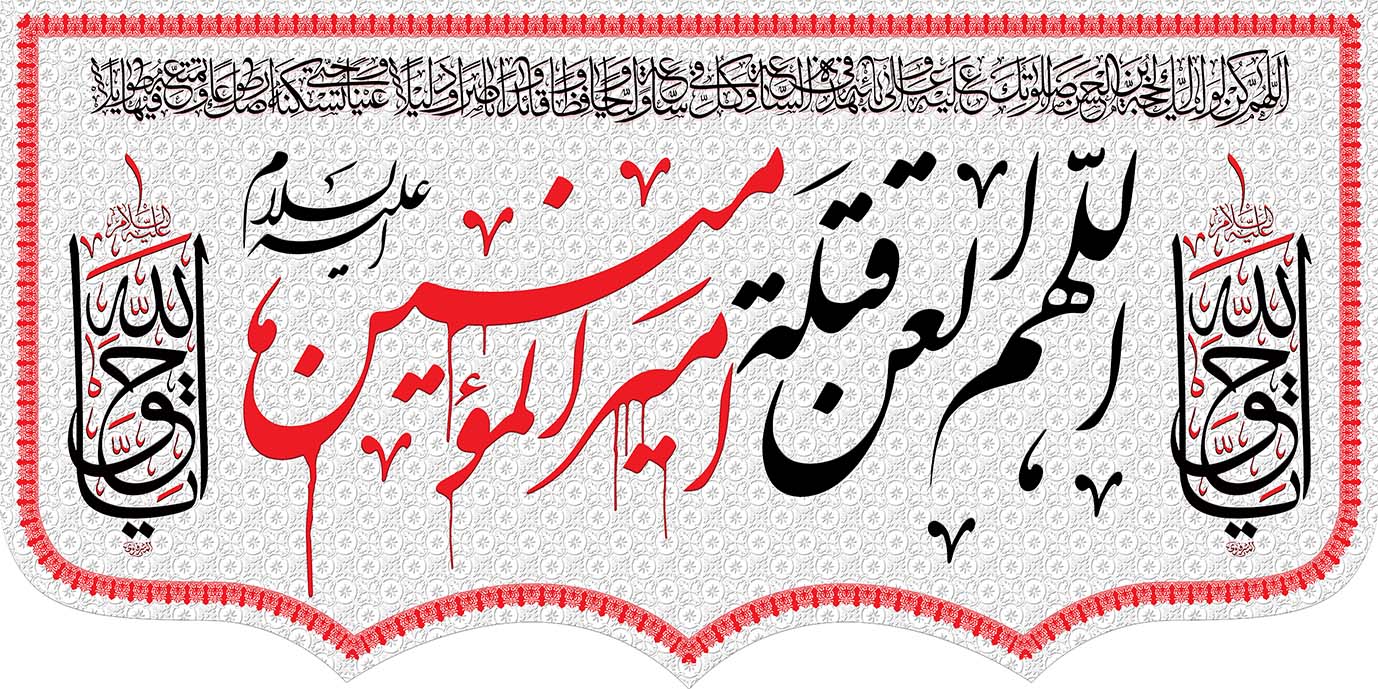 اللهم كن لوليك الحجة بن الحسن صلواتك عليه وعلى آبائه في هذه الساعة وفي كل ساعة وليا وحافظا وقائدا وناصرا ودليلا وعينا حتى تسكنه أرضك طوعا وتمتعه فيها طويلا
اللهم العن قتلة امیر المؤمنین علیه السلام
علیه السلام
علیه السلام